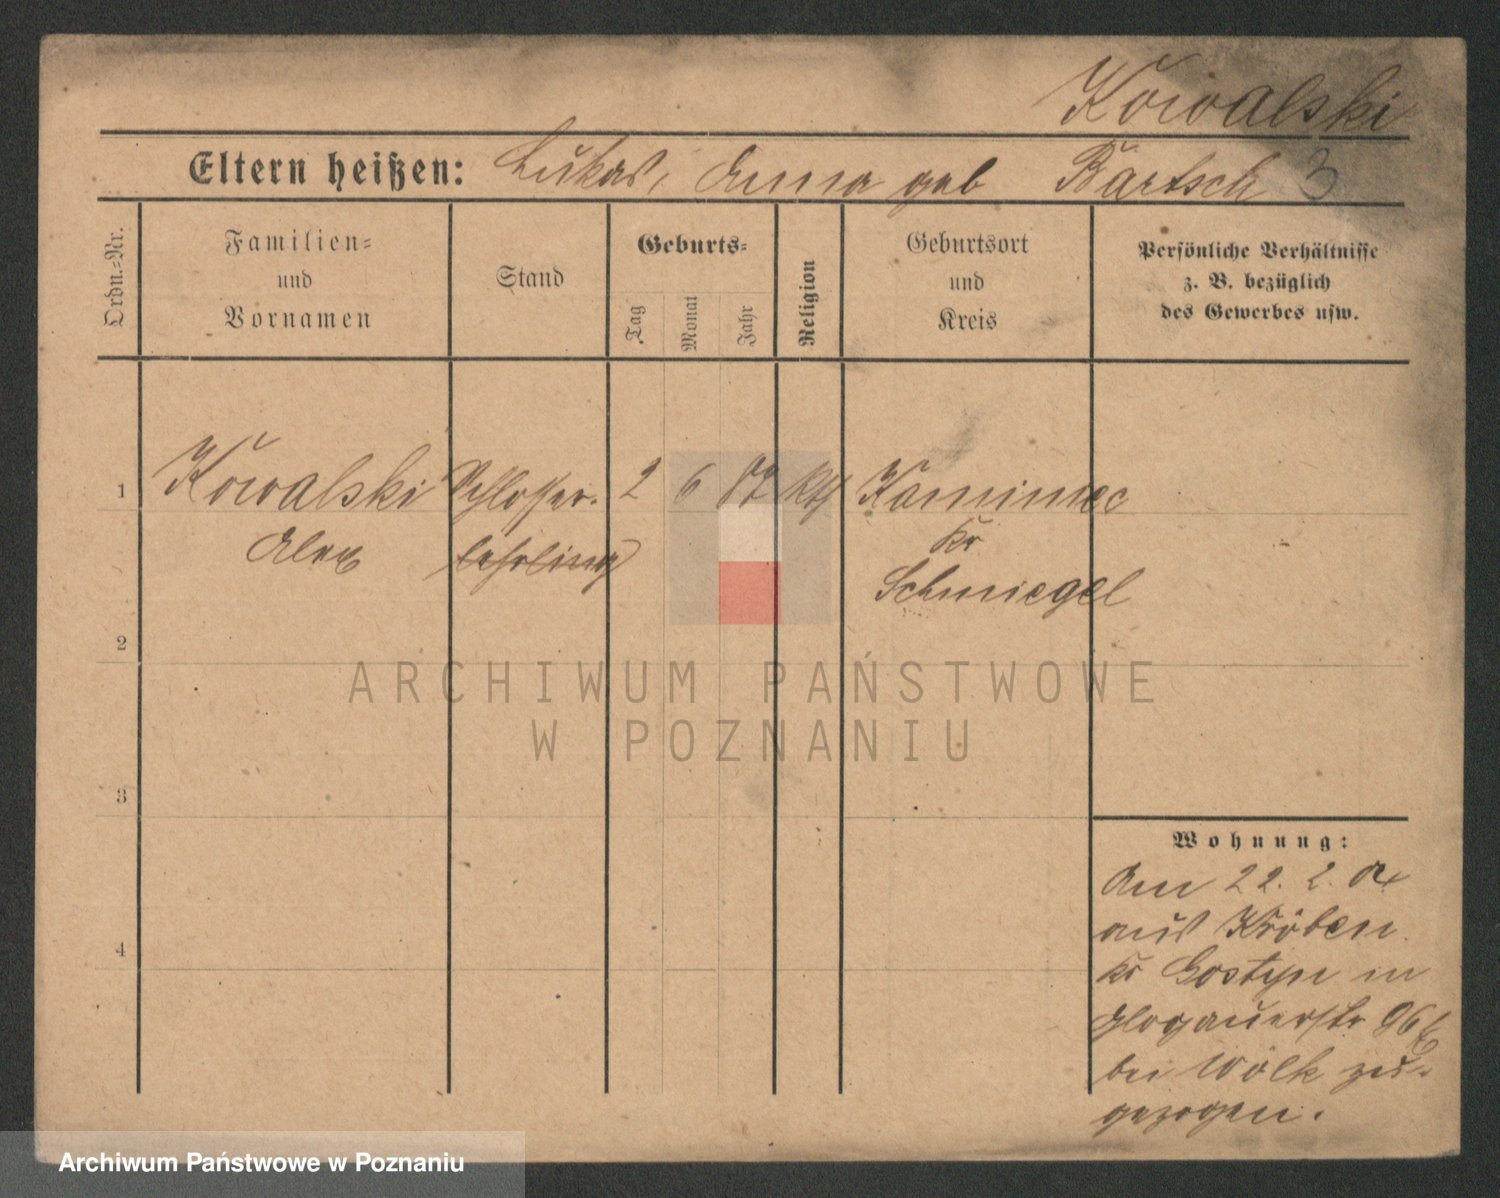 Kowalski
Eltern heißen: Lukas, Anna geb Bartsch 3
Ordn.-Nr.
Familien-
und
Vornamen
Stand
Geburts-
Tag
Monat
Jahr
Religion
Geburtsort
und
Kreis
Persönliche Verhältnisse
z. B. bezüglich
des Gewerbes usw.
1 Kowalski Schlosser- 2 6 87 kth Kaminiec
Alex lehrling Kr
Schmiegel
2
3
4
Wohnung:
Am 22. 2.
aus Kröben
Kr Gostyn in
Glogauerstr 96
bei Wolk zu-
gezogen.
ARCHIWUM PAŃSTWOWE
W POZNANIU
Archiwum Państwowe w Poznaniu